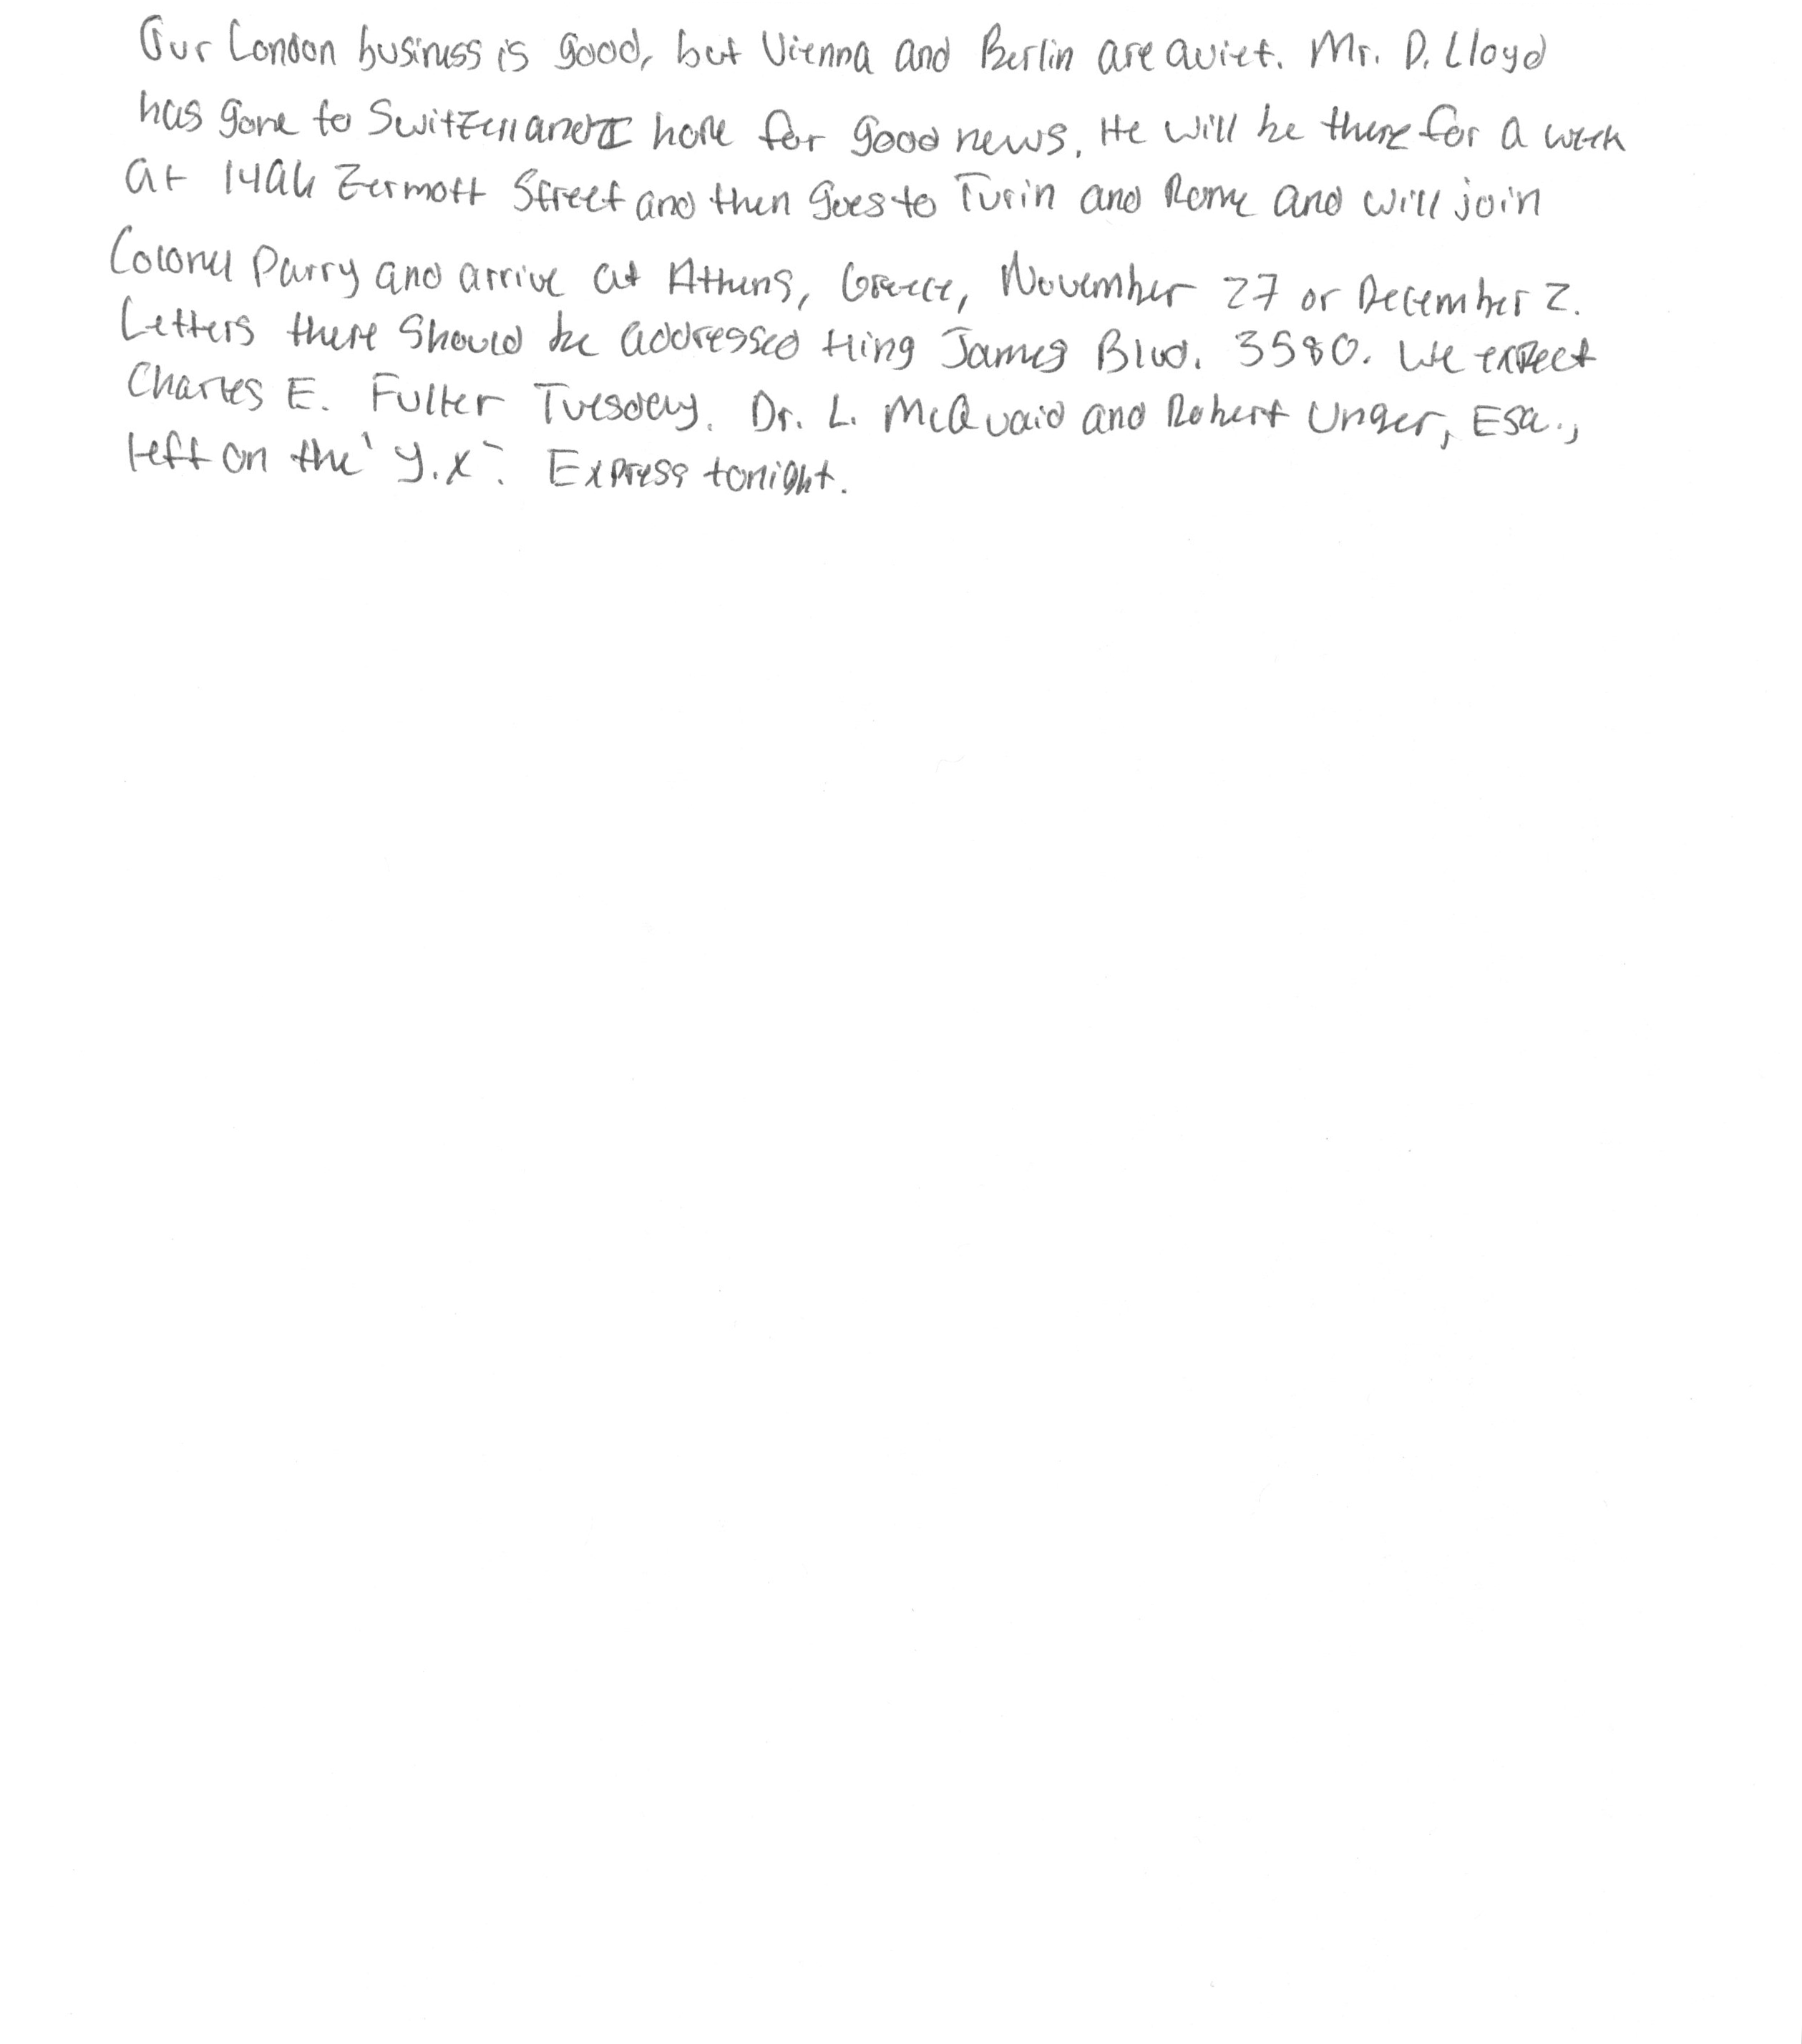 Our London business is good, but Vienna and Berlin are quiet. Mr. D. Lloyd
has gone to Switzerland I hope for good news. He will be there for a week
at 1496 Zermott Street and then goes to Turin and Rome and will join
Colonel Parry and arrive at Athens, Greece, November 27 or December 2.
Letters there should be addressed King James Blvd. 3580. We expect
Charles E. Fuller Tuesday. Dr. L. McQuaid and Robert Unger, Esq.,
left on the "Y.X". Express tonight.